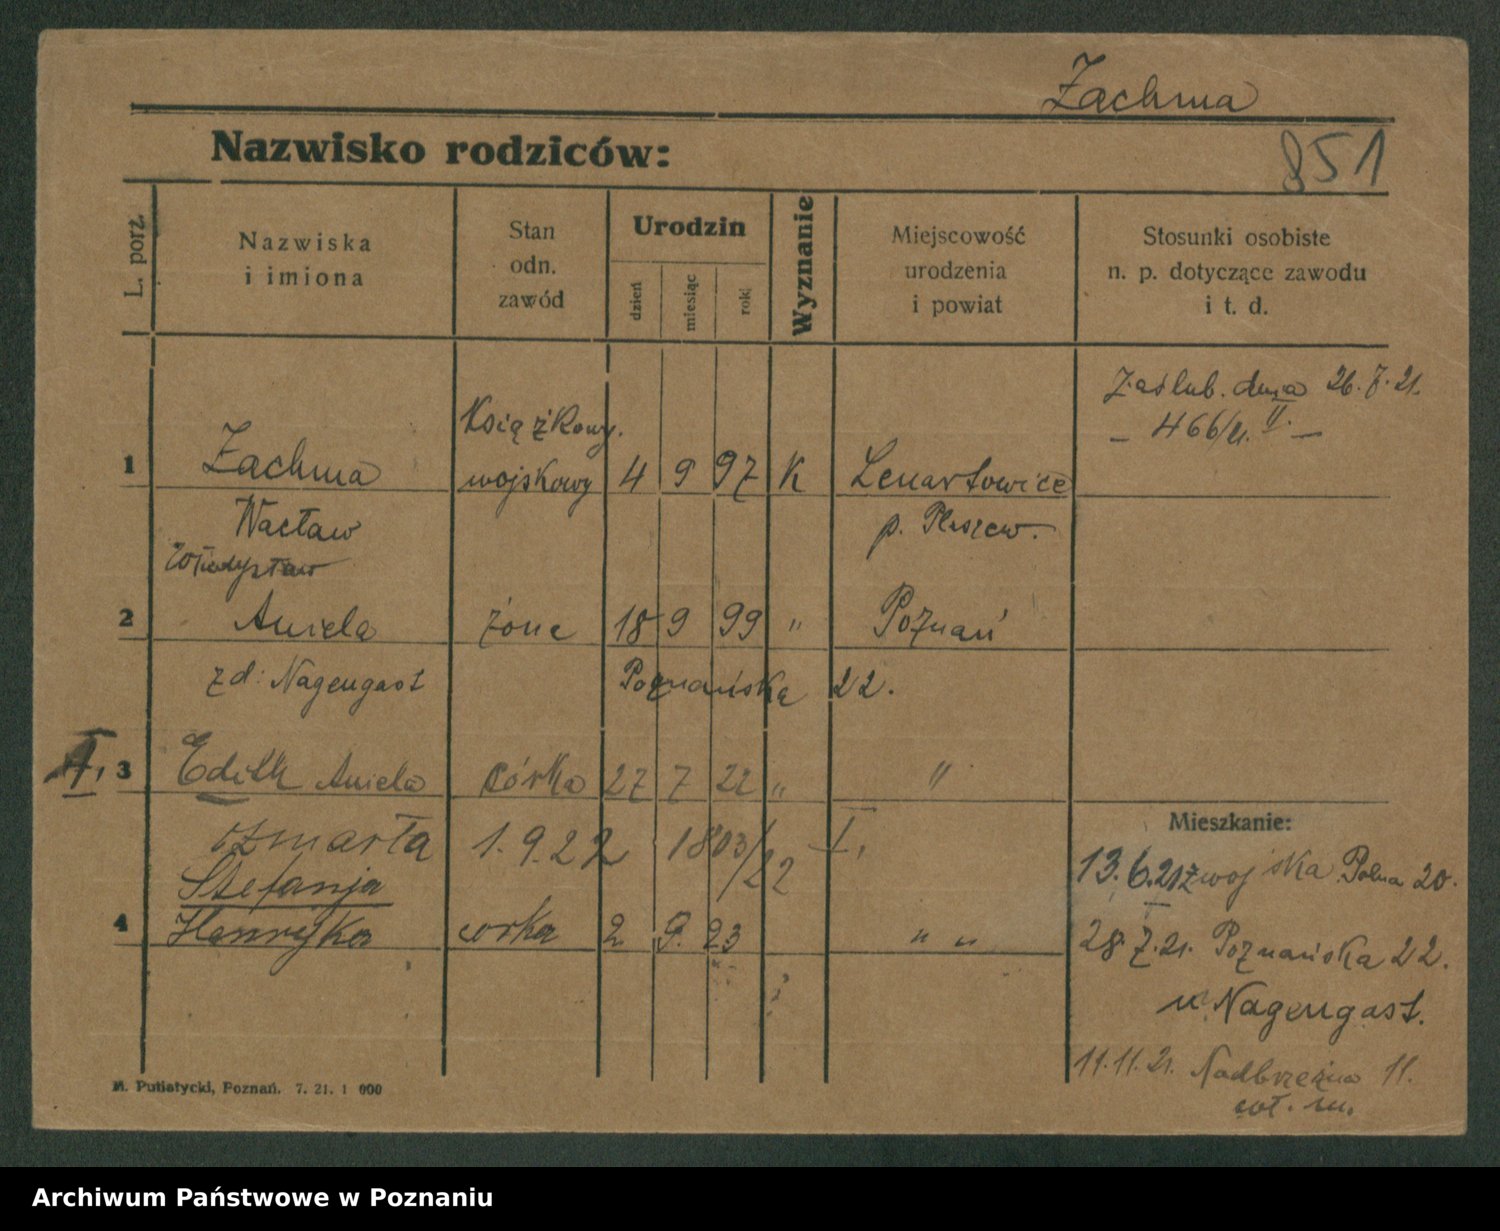 Żachma
Nazwisko rodziców:
851
L. porz.
Nazwiska
i imiona
Stan
odn.
zawód
Urodzin
dzień
miesiąc
rok
Wyznanie
Miejscowość
urodzenia
i powiat
Stosunki osobiste
n. p. dotyczące zawodu
i t. d.
Zaślub. dnia 26.7.21.
— 466/21. II. —
Książkowy.
1 Żachma wojskowy 4 9 97 K Lenartowice
Wacław p. Pleszew.
Władysław
2 Aniela żona 18 9 99 " Poznań
zd: Nagengast Poznańska 22.
I, 3 Edith Aniela córka 27 7 22 " "
Mieszkanie:
zmarła 1.9.22 1803/22 I,
13.6.21 z wojska Polna 20.
Stefanja
4 Henryka corka 2 9. 23 " "
28.7.21. Poznańska 22.
u Nagengast.
11.11.21. Nadbrzeżna 11.
wł. m.
M. Putiatycki, Poznań. 7. 21. 1 000
Archiwum Państwowe w Poznaniu